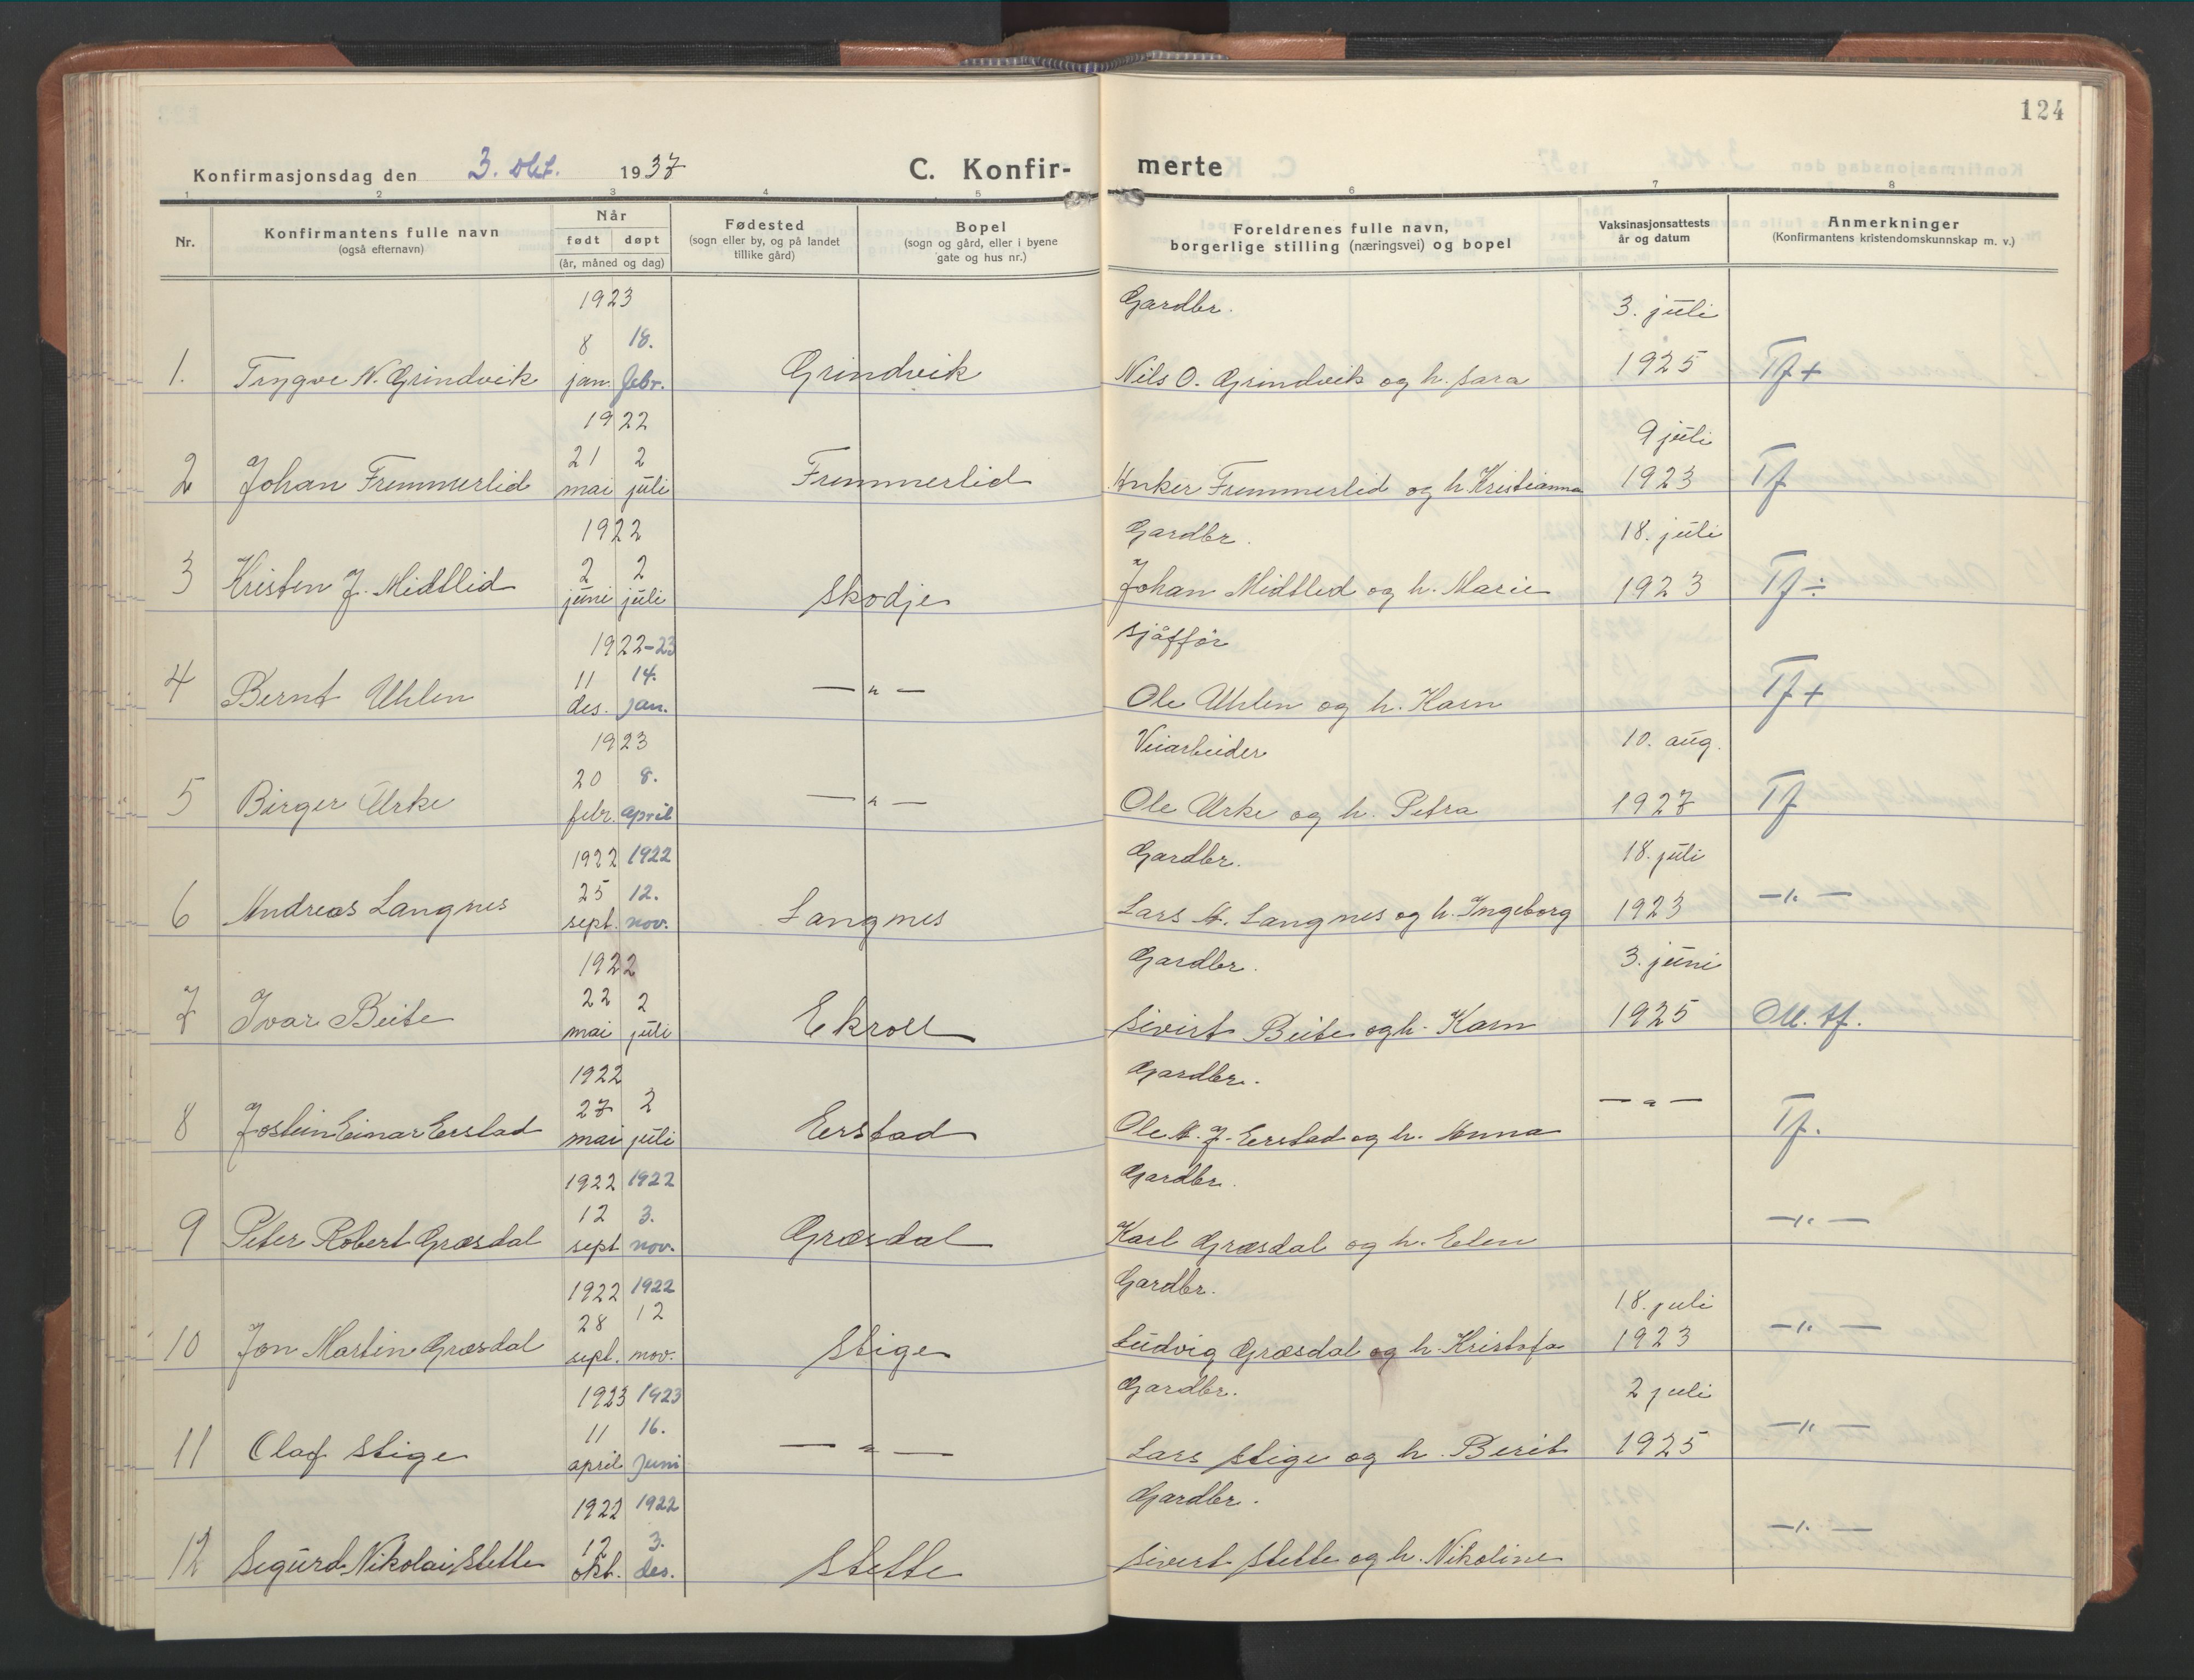 124
Konfirmasjonsdag den 3. okt. 1937 C. Konfir- merte
1 2 3 4 5 6 7 8
Nr. Konfirmantens fulle navn (også efternavn) Når født døpt (år, måned og dag) Fødested (sogn eller by, og på landet tillike gård) Bopel (sogn og gård, eller i byene gate og hus nr.) Foreldrenes fulle navn, borgerlige stilling (næringsvei) og bopel Vaksinasjonsattests år og datum Anmerkninger (Konfirmantens kristendomskunnskap m. v.)
1923 Gardbr. 3. juli
8 18.
1. Trygve N. Grindvik jan. febr. Grindvik Nils O. Grindvik og h. Sara 1925 Tf +
1922 9 juli
21 2
2 Johan Fremmerlid mai juli Fremmerlid Anker Fremmerlid og h. Kristianna 1923 Tf
1922 Gardbr. 18. juli
2 2
3 Kristen J. Midtlid juni juli Skodje Johan Midtlid og h. Marie 1923 Tf ÷
1922-23 Sjåffør
11 14.
4 Bernt Uhlen des. jan. — " — Ole Uhlen og h. Karn Tf +
1923 Veiarbeider 10. aug.
20 8.
5 Birger Urke febr. april — " — Ole Urke og h. Petra 1927 Tf
1922 1922 Gardbr. 18. juli
25 12.
6 Andreas Langnes sept. nov. Langnes Lars A. Langnes og h. Ingeborg 1923 — " —
1922 Gardbr. 3. juni
22 2
7 Ivar Beite mai juli Ekroll Sivert Beite og h. Karn 1925 M. tf.
1922 Gardbr.
27 2
8 Jostein Einar Eerstad mai juli Eerstad Ole A. J. Eerstad og h. Anna — " — Tf.
1922 1922 Gardbr.
12 3.
9 Peter Robert Græsdal sept nov. Græsdal Karl Græsdal og h. Elen — " —
1922 1922 Gardbr. 18. juli
28 12
10 Jon Martin Græsdal sept. nov. Stige Ludvig Græsdal og h. Kristofa 1923 — " —
1923 1923 Gardbr. 2 juli
11 16.
11 Olaf Stige april juni — " — Lars Stige og h. Berit 1925 — " —
1922 1922 Gardbr.
12 3.
12 Sigurd Nikolai Stette okt. des. Stette Sivert Stette og h. Nikoline — " —